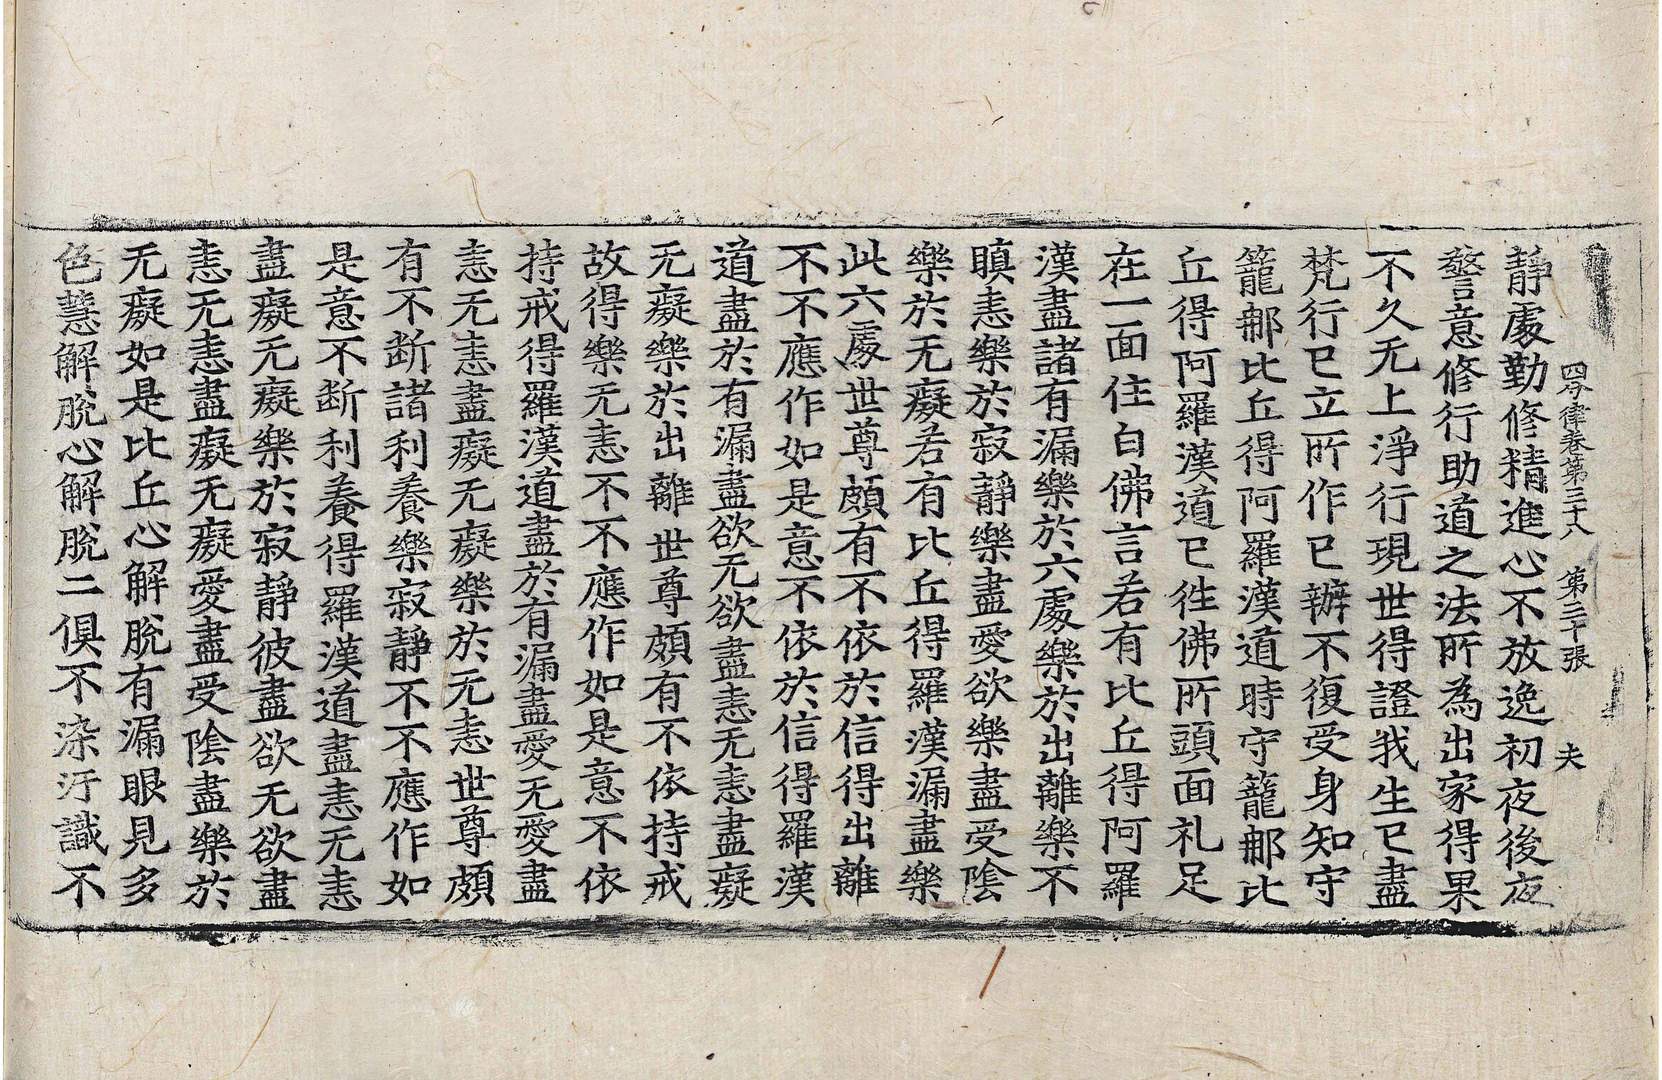 四分律卷第三十八　第三十張　夫
靜處勤修精進心不放逸初夜後夜
警意修行助道之法所為出家得果
不久无上淨行現世得證我生已盡
梵行已立所作已辦不復受身知守
籠那比丘得阿羅漢道時守籠那比
丘得阿羅漢道已徃佛所頭面礼足
在一面住白佛言若有比丘得阿羅
漢盡諸有漏樂於六處樂於出離樂不
瞋恚樂於寂靜樂盡愛欲樂盡受陰
樂於无癡若有比丘得羅漢漏盡樂
此六處世尊頗有不依於信得出離
不不應作如是意不依於信得羅漢
道盡於有漏盡欲无欲盡恚无恚盡癡
无癡樂於出離世尊頗有不依持戒
故得樂无恚不不應作如是意不依
持戒得羅漢道盡於有漏盡愛无愛盡
恚无恚盡癡无癡樂於无恚世尊頗
有不断諸利養樂寂靜不不應作如
是意不断利養得羅漢道盡恚无恚
盡癡无癡樂於寂靜彼盡欲无欲盡
恚无恚盡癡无癡愛盡受陰盡樂於
无癡如是比丘心解脫有漏眼見多
色慧解脫心解脫二俱不染汙識不